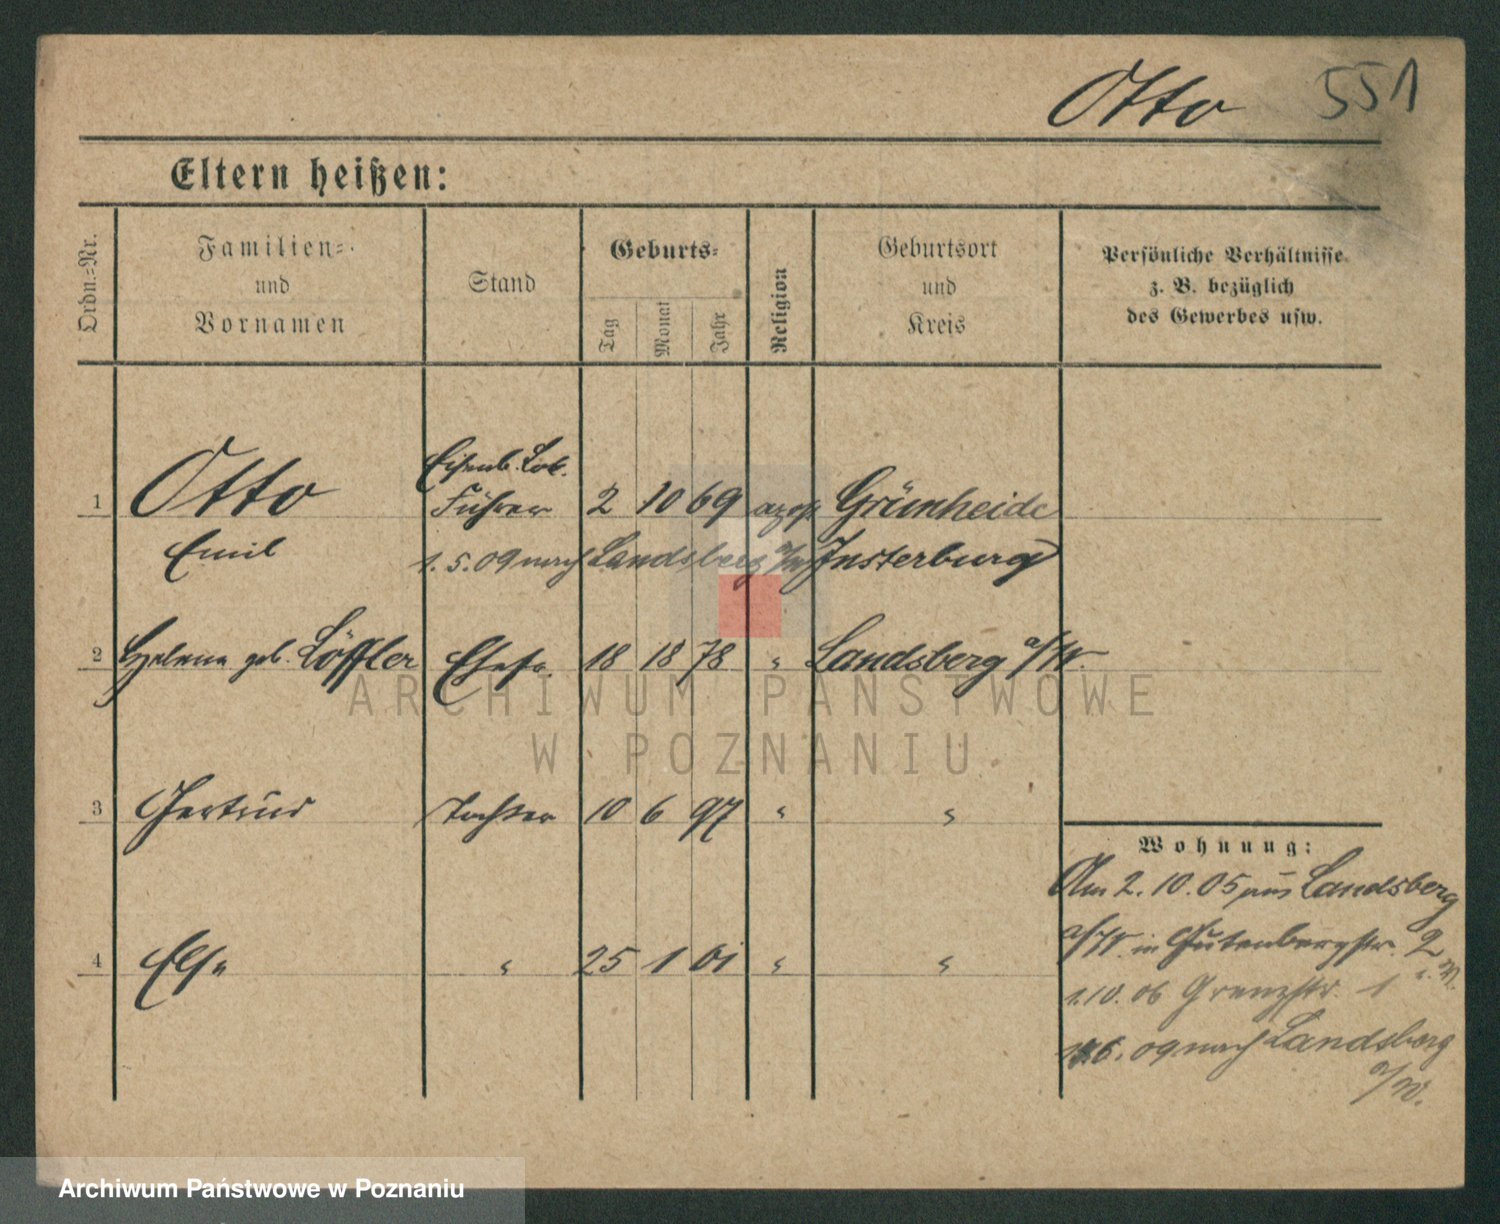 Otto 551
Eltern heißen:
Ordn.=Nr.
Familien=
und
Vornamen
Stand
Geburts=
Tag
Monat
Jahr
Religion
Geburtsort
und
Kreis
Persönliche Verhältnisse
z. B. bezüglich
des Gewerbes usw.
Eisenb. Lok.
1 Otto Führer 2 10 69 Grünheide
Emil 1. 5. 09 nach Landsberg a/W Insterburg
2 Helene geb. Löffler Ehefr. 18 18 78 " Landsberg a/W.
3 Gertrud Tochter 10 6 97 " "
4 Else " 25 1 01 " "
Wohnung:
Am 2. 10. 05 aus Landsberg
a/W. in Gutenbergstr. 2
1. 10. 06 Grenzstr. 1
6. 09 nach Landsberg
a/W.
ARCHIWUM PAŃSTWOWE
W POZNANIU
Archiwum Państwowe w Poznaniu